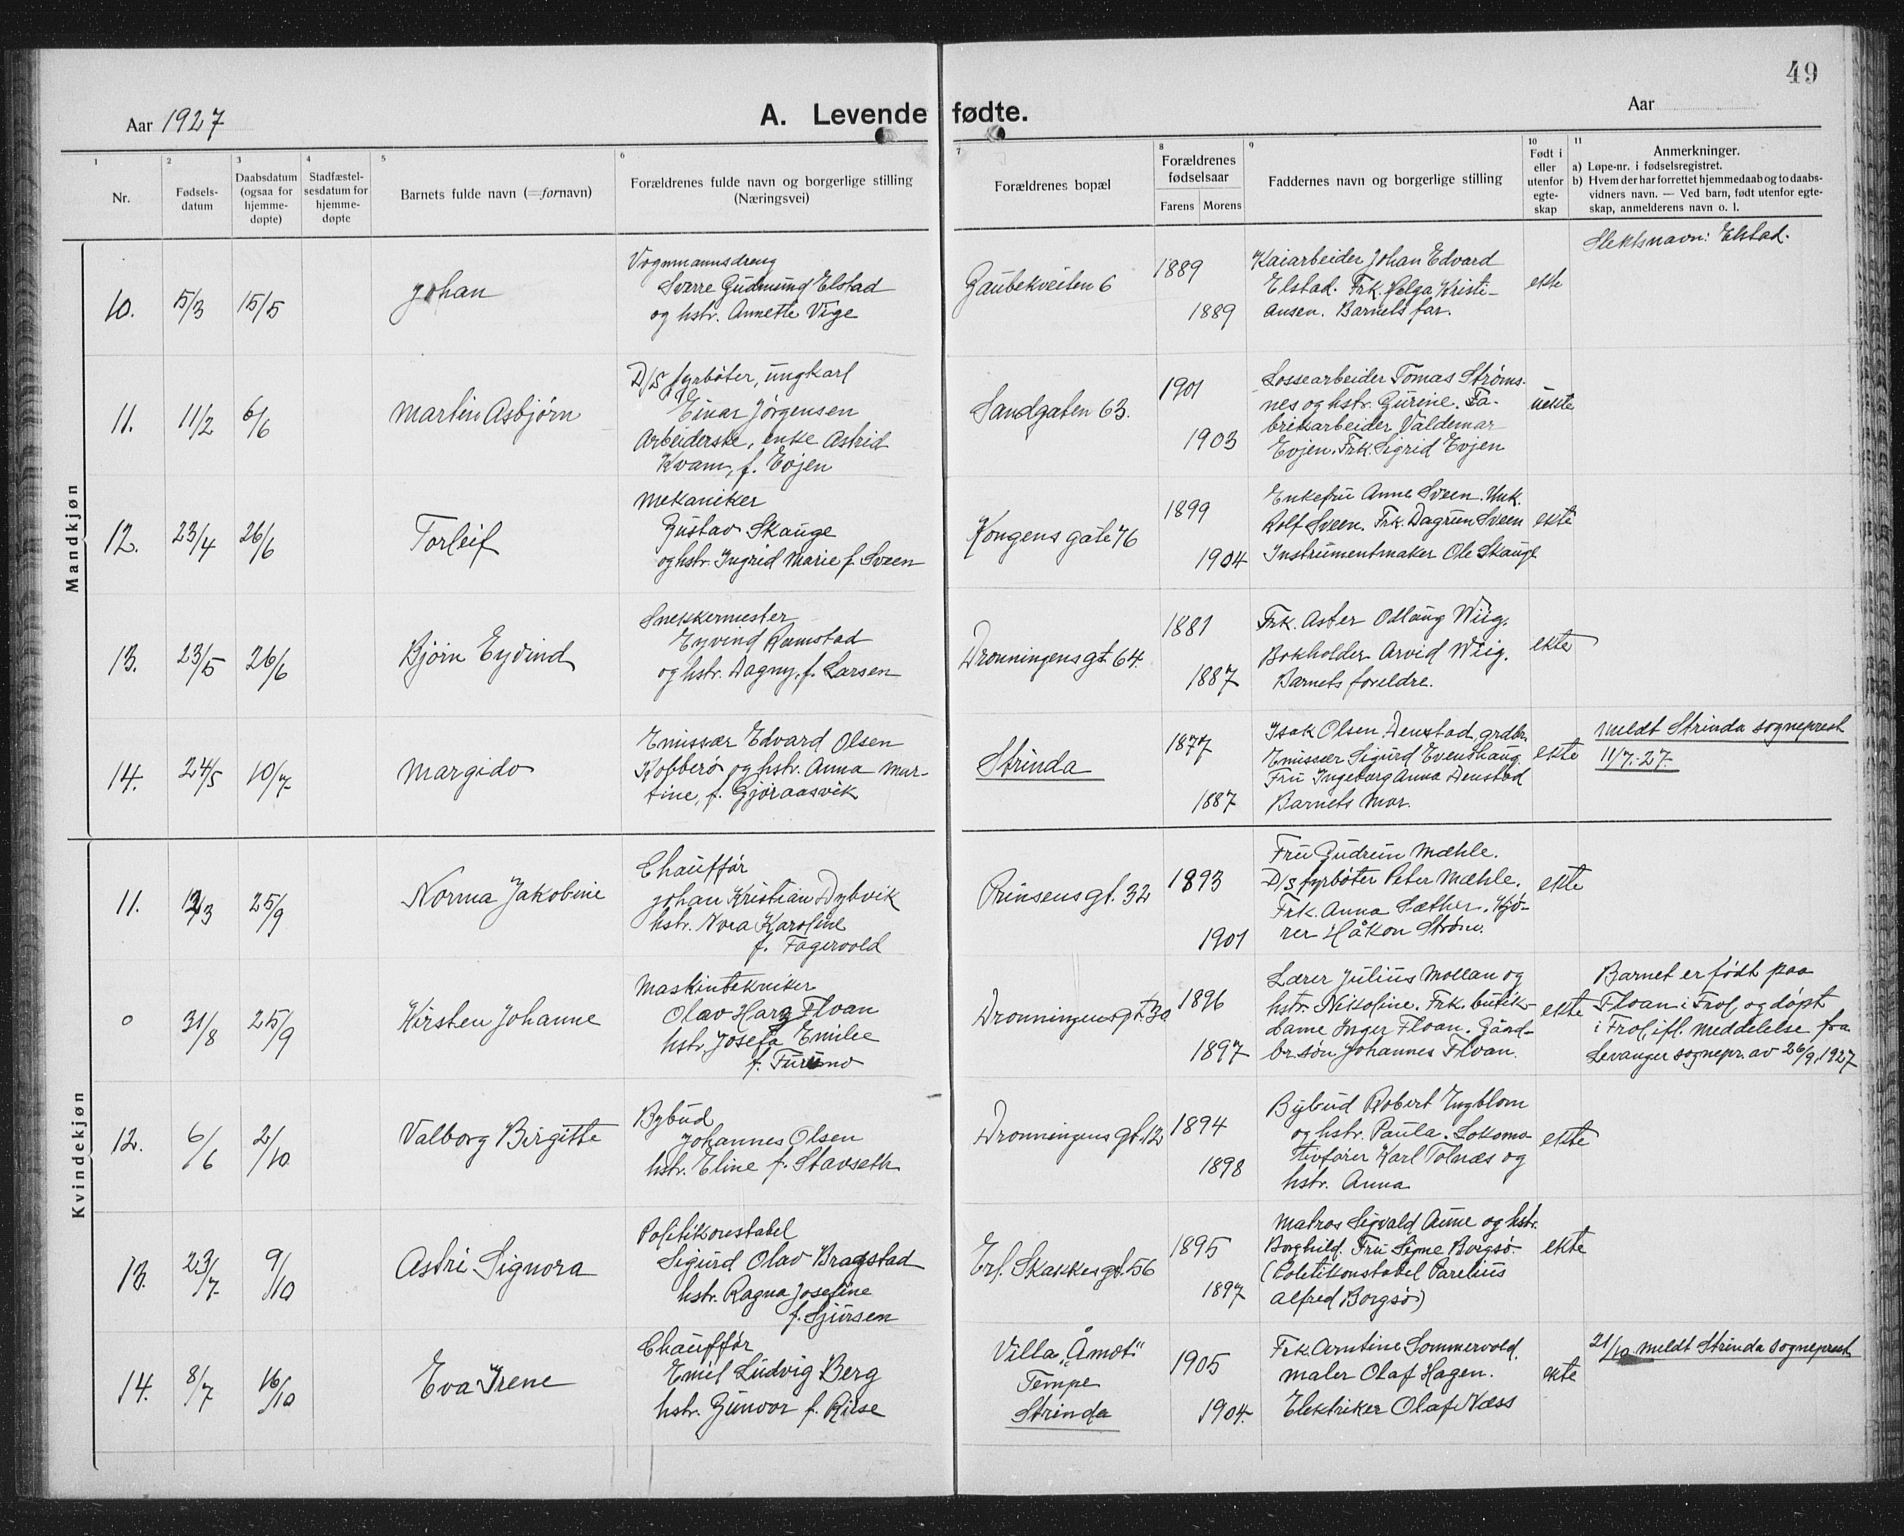 49
Aar 1927
A. Levende fødte.
Aar
1
2
3
4
5
6
7
8
9
10
11
Nr.
Fødsels-
datum
Daabsdatum
(ogsaa for
hjemme-
døpte)
Stadfæstel-
sesdatum for
hjemme-
døpte
Barnets fulde navn (=fornavn)
Forældrenes fulde navn og borgerlige stilling
(Næringsvei)
Forældrenes bopæl
Forældrenes
fødselsaar
Farens Morens
Faddernes navn og borgerlige stilling
Født i
eller
utenfor
egte-
skap
Anmerkninger.
a) Løpe-nr. i fødselsregistret.
b) Hvem der har forrettet hjemmedaab og to daabs-
vidners navn. — Ved barn, født utenfor egte-
skap, anmelderens navn o. l.
Mandkjøn
10. 15/3 15/5
Johan
Vognmannsdreng
Sverre Gudmund Elstad
og hstr. Annette Vige
Gaubekveiten 6
1889
1889
Kaiarbeider Johan Edvard
Elstad. Frk. Helga Kristi-
ansen. Barnets far.
ekte
Slektsnavn: Elstad.
11. 11/2 6/6
Martin Asbjørn
D/S fyrbøter, ungkarl
Einar Jørgensen
Arbeiderske, enke Astrid
Kvam, f. Evjen
Sandgaten 63.
1901
1903
Lossearbeider Tomas Strøms-
nes og hstr. Gurine. Fa-
brikarbeider Valdemar
Evjen. Frk. Sigrid Evjen
uekte
12. 23/4 26/6
Torleif
Mekaniker
Gustav Skauge
og hstr. Ingrid Marie f. Sveen
Kongens gate 76
1899
1904
Enkefru Anne Sveen. Unk.
Rolf Sveen. Frk. Dagrun Sveen
Instrumentmaker Ole Skauge
ekte
13. 23/5 26/6
Bjørn Eyvind
Snekkermester
Eyvind Ramstad
og hstr. Dagny, f. Larsen
Dronningens gt. 64.
1881
1887
Frk. Aster Odlaug Wiig.
Bokholder Arvid Wiig.
Barnets foreldre.
ekte
14. 24/5 10/7
Margido
Emissær Edvard Olsen
Kobberø og hstr. Anna Mar-
tine, f. Gjøraasvik
Strinda
1877
1887
Isak Olsen Denstad, grdbr.
Emissær Sigurd Evenshaug.
Fru Ingeborg Anna Denstad
Barnets mor.
ekte
meldt Strinda sogneprest
11/7.-27.
Kvindekjøn
11. 25/9
Norma Jakobine
Chauffør
Johan Kristian Dybvik
hstr. Nora Karoline
f. Fagervold
Prinsens gt. 32
1893
1901
Fru Gudrun Mæhle.
D/S fyrbøter Peter Mæhle.
Frk. Anna Sæther. Kjø-
rer Håkon Strøm.
ekte
0 31/8 25/9
Kirsten Johanne
Maskintekniker
Olav Harg Floan
hstr. Josefa Emilie
f. Furuno
Dronningens gt. 30
1896
1897
Lærer Julius Mollan og
hstr. Nikoline. Frk. butik-
dame Inger Floan. Gård-
br. søn Johannes Floan.
ekte
Barnet er født paa
Floan i Frol og døpt
i Frol, ifl. meddelelse fra
Levanger sognepr. av 26/9.1927
12. 6/6 2/10
Valborg Birgitte
Bybud
Johannes Olsen
hstr. Eline f. Stavseth
Dronningens gt. 12
1894
1898
Bybud Robert Engblom
og hstr. Paula. Lokomo-
tivfører Karl Tolnæs og
hstr. Anna
ekte
13. 23/7 9/10
Astri Signora
Politikonstabel
Sigurd Olav Bragstad
hstr. Ragna Josefine
f. Sjursen
Erl. Skakkes gt. 56
1895
1897
Matros Sigvald Aune og hstr.
Borghild. Fru Signe Borgsø
(Politikonstabel Parelius
Alfred Borgsø)
ekte
14. 8/7 16/10
Eva Irene
Chauffør
Emil Ludvig Berg
hstr. Gunvor f. Riise
Villa „Åmot"
Tempe
Strinda
1905
1904.
Frk. Arntine Sommervold.
maler Olaf Hagen.
Elektriker Olaf Næss
ekte
21/10 meldt Strinda sogneprest